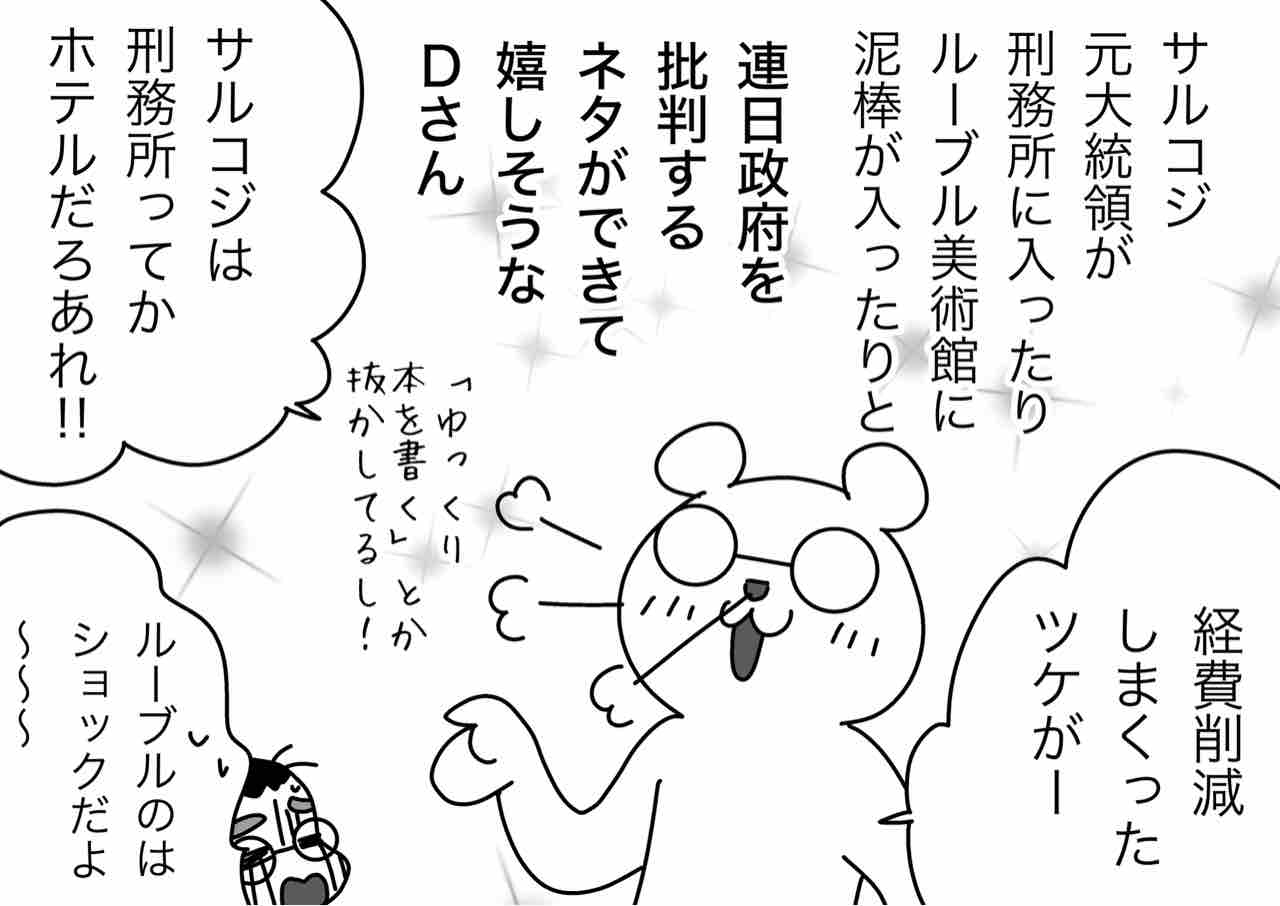 サルコジ
元大統領が
刑務所に入ったり
ルーブル美術館に
泥棒が入ったりと
連日政府を
批判する
ネタができて
嬉しそうな
Dさん
経費削減
しまくった
ツケがー
サルコジは
刑務所ってか
ホテルだろあれ!!
「ゆっくり
本を書く」とか
抜かしてるし!
ルーブルのは
ショックだよ
～～～